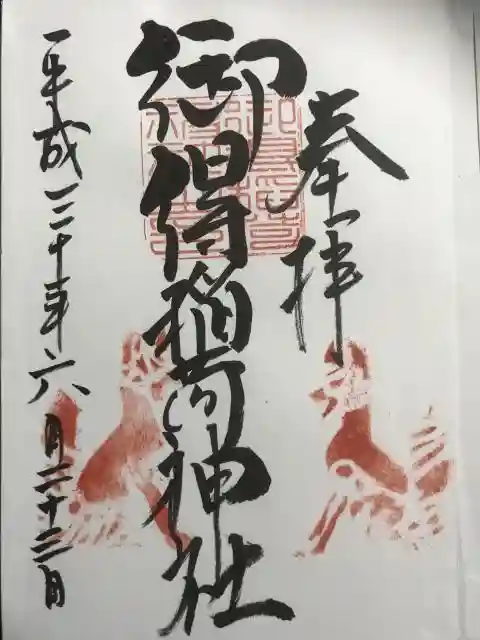 奉拝
御得稲荷神社
平成三十年六月二十三日